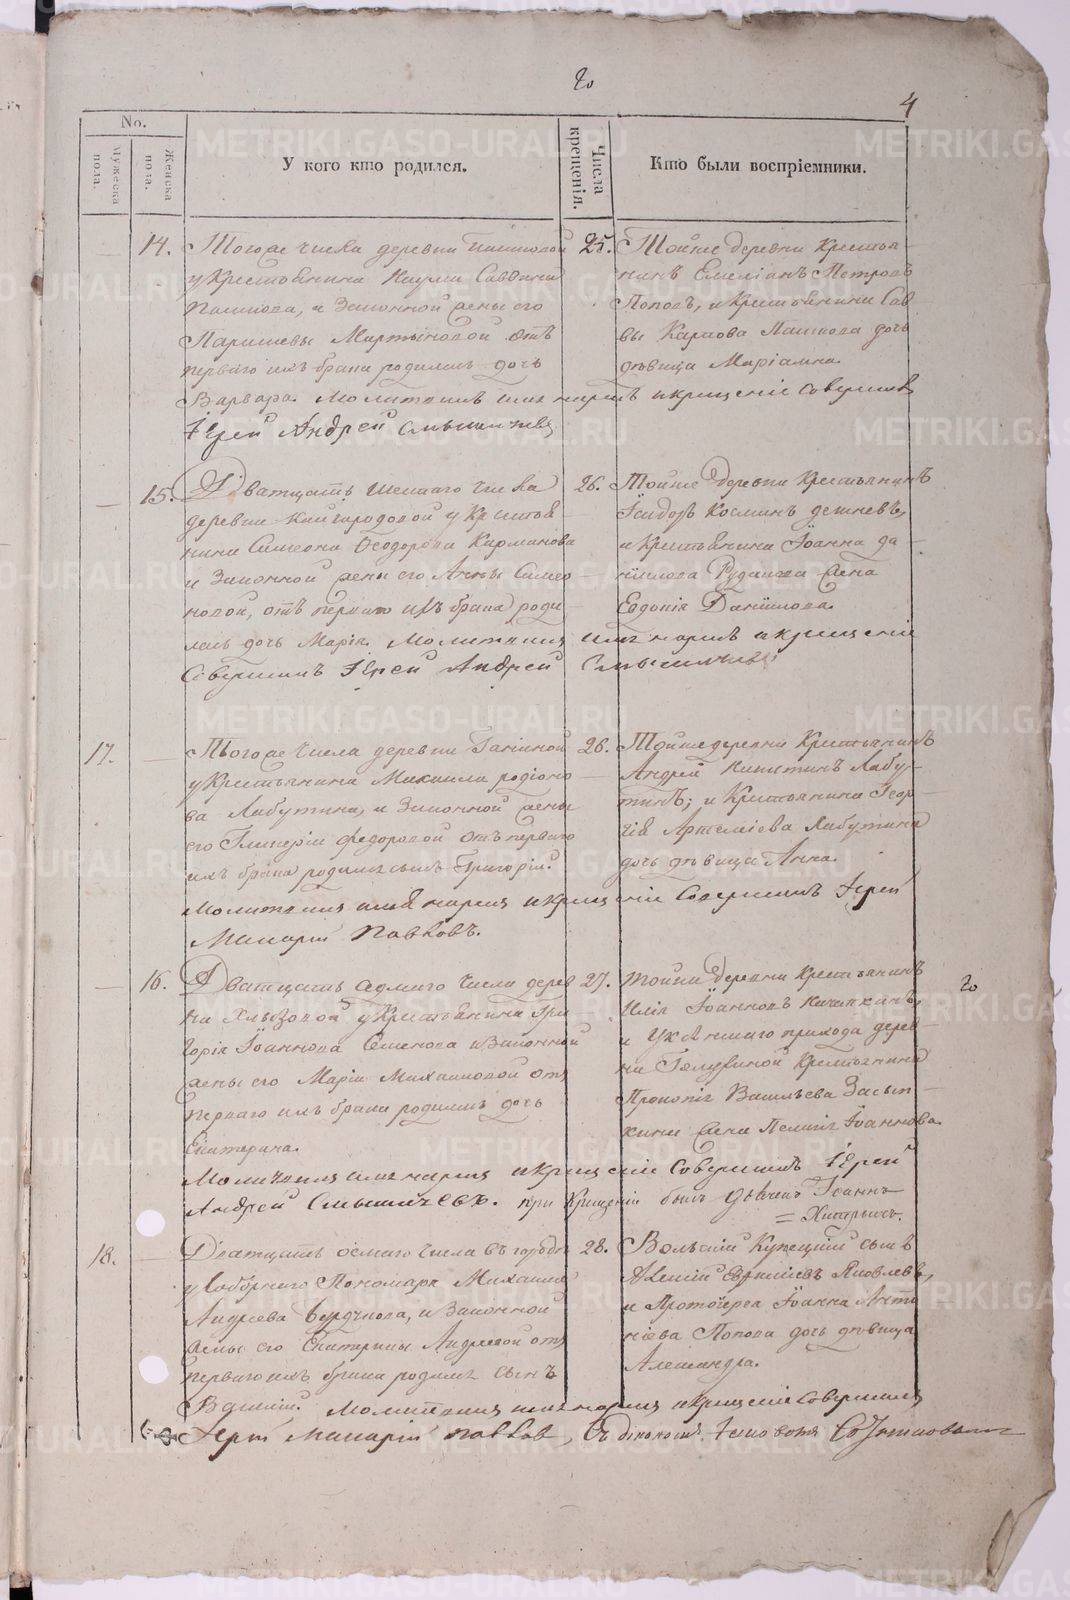 20
4
No.
Мужеска пола.
Женска пола.
У кого кто родился.
Числа крещенія.
Кто были воспріемники.
14.
Тогоже числа деревни Пашковой
у Крестьянина Наума Саввина
Пашкова, и Законной жены его
Парасковьи Мартыновой отъ
перваго ихъ брака родилась дочь
Варвара. Молитвилъ имя нарекъ и крещеніе совершилъ
Іерей Андрей
25.
Тойже деревни Крестья-
нинъ Емеліанъ Петровъ
Поповъ, и крестьянина Сав-
вы Карпова Пашкова дочь
дѣвица Маріамна.
15.
Дватцать шестаго числа
деревни Кайгородовой у Крестья-
нина Симеона Ѳеодорова Карманова
и Законной жены его Анны Симео-
новой, отъ перваго ихъ брака роди-
лась дочь Марія. Молитвилъ имя нарекъ и крещеніе
Совершилъ Іерей Андрей
26.
Тойже деревни Крестьянинъ
Ісидоръ Косминъ
и Крестьянина Іоанна Да-
ніилова жена
Евдокія Даніилова.
17.
Тогоже числа деревни
у Крестьянина Михаила Родіоно-
ва Лабутина, и Законной жены
его Гликеріи Федоровой отъ перваго
ихъ брака родился сынъ Григорій.
Молитвилъ имя нарекъ и крещеніе Совершилъ Іерей
Макарій Павловъ.
26.
Тойже деревни Крестьянинъ
Андрей Лабу-
тинъ; и Крестьянина Геор-
гія Артеміева Лабутина
дочь дѣвица Анна.
16.
Дватцать седмаго числа дерев-
ни у Крестьянина Гри-
горія Іоаннова Семенова и Законной
жены его Маріи Михаиловой отъ
перваго ихъ брака родилась дочь
Екатерина.
Молитвилъ имя нарекъ и крещеніе Совершилъ Іерей
Андрей при Крещеніи былъ дьячекъ Іоаннъ
27.
Тойже деревни Крестьянинъ
Илія Іоанновъ
и прихода дерев-
ни Крестьянина
Прокопія Васильева Засып-
кина жена Пелагія Іоаннова.
20
18.
Дватцать осмаго числа въ городѣ
у Соборнаго Пономаря Михаила
Андреева и Законной
жены его Екатерины Андреевой отъ
перваго ихъ брака родился сынъ
Василій. Молитвилъ имя нарекъ и крещеніе Совершилъ
Іерей Макарій Павловъ, съ діакономъ
28.
Вольскій Купецкій сынъ
Алексій Яковлевъ,
и Протоіерея Іоанна Анто-
ніева Попова дочь дѣвица
Александра.
METRIKI.GASO-URAL.RU